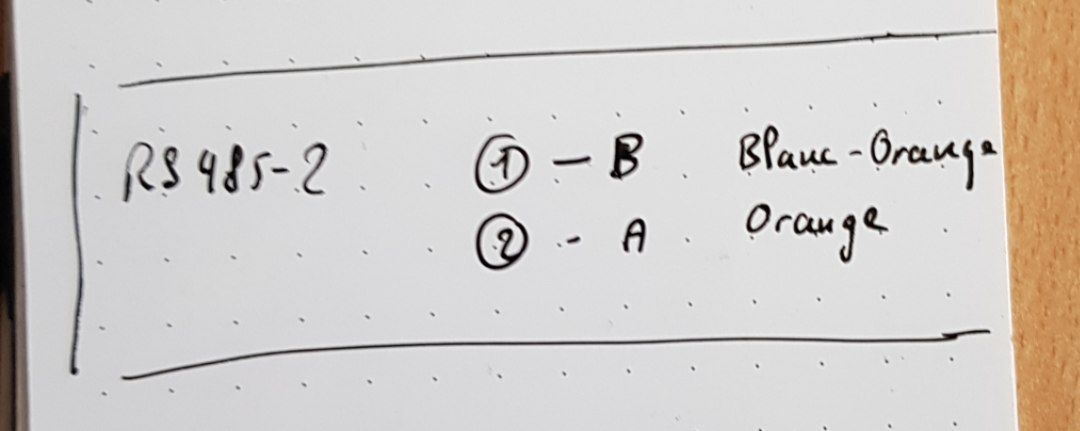 RS485-2 ① - B Blanc-Orange
② - A Orange